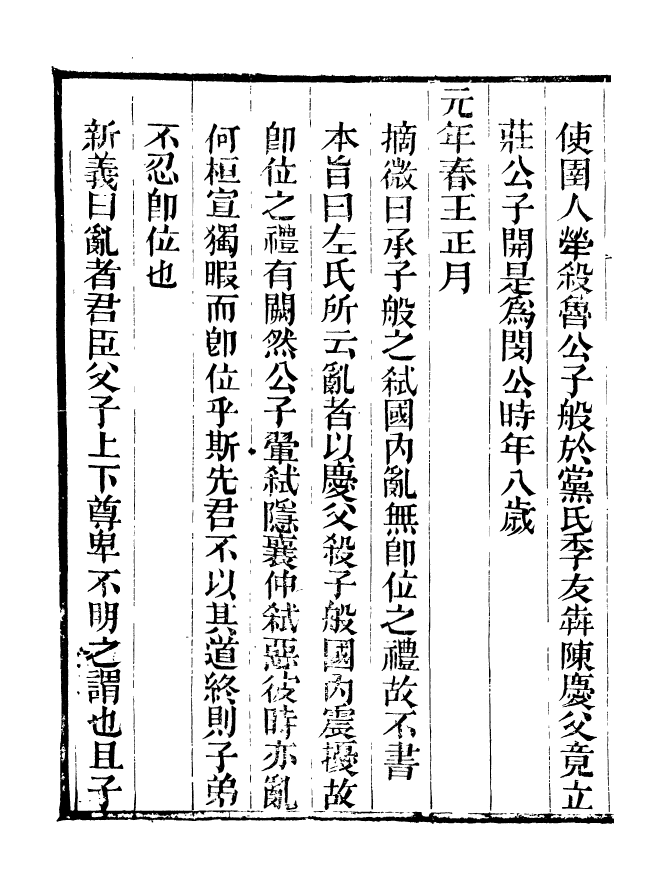 使圉人犖殺魯公子般於黨氏季友犇陳慶父竟立
莊公子開是為閔公時年八歲
元年春王正月
摘微曰承子般之弑國內亂無卽位之禮故不書
本旨曰左氏所云亂者以慶父殺子般國內震擾故
卽位之禮有闕然公子翬弑隱襄仲弑惡彼時亦亂
何桓宣獨暇而卽位乎斯先君不以其道終則子弟
不忍卽位也
新義曰亂者君臣父子上下尊卑不明之謂也且子